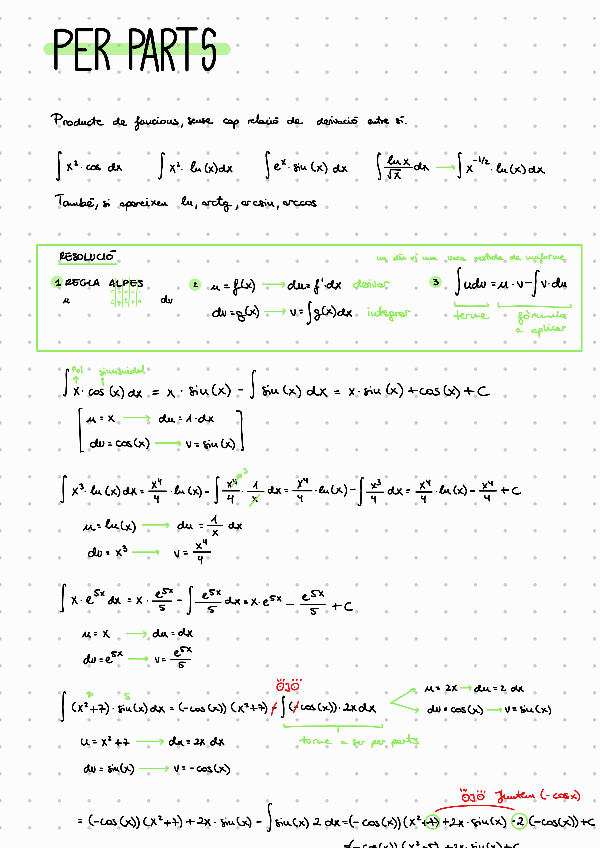 PER PARTS
Producte de funcions, sense cap relació de derivació entre sí.
∫ x²· cos dx   ∫ x²· ln(x)dx   ∫ eˣ· sin(x) dx   ∫ ln x/√x dx → ∫ x^(-1/2)· ln(x)dx
També, si apareixen ln, arctg, arcsin, arccos
RESOLUCIÓ   un día ví una vaca vestida de uniforme
1 REGLA ALPES   2 u = f(x) → du = f'dx derivar   3 ∫udv = u·v - ∫v·du
u   dv   dv = g(x) → v = ∫g(x)dx integrar   terme   fórmula
a aplicar
Pol   sinusoidal
∫ x· cos(x)dx = x· sin(x) - ∫ sin(x) dx = x· sin(x) + cos(x) + C
u = x → du = 1·dx
dv = cos(x) → v = sin(x)
∫ x³· ln(x)dx = x⁴/4 · ln(x) - ∫ x⁴/4 · 1/x dx = x⁴/4 · ln(x) - ∫ x³/4 dx = x⁴/4 · ln(x) - x⁴/4 + C
u = ln(x) → du = 1/x dx
dv = x³ → v = x⁴/4
∫ x· e^(5x) dx = x· e^(5x)/5 - ∫ e^(5x)/5 dx = x· e^(5x) - e^(5x)/5 + C
u = x → du = dx
dv = e^(5x) → v = e^(5x)/5
OJO
P   S   u = 2x → du = 2 dx
∫ (x²+7)· sin(x)dx = (-cos(x)) (x²+7) - ∫ (-cos(x))· 2x dx   dv = cos(x) → v = sin(x)
u = x²+7 → du = 2x dx   torna a ser per parts
dv = sin(x) → v = -cos(x)
OJO Juntem (-cosx)
= (-cos(x)) (x²+7) + 2x· sin(x) - ∫ sin(x) 2 dx = (-cos(x)) (x²+7) + 2x· sin(x) - 2 (-cos(x)) + C